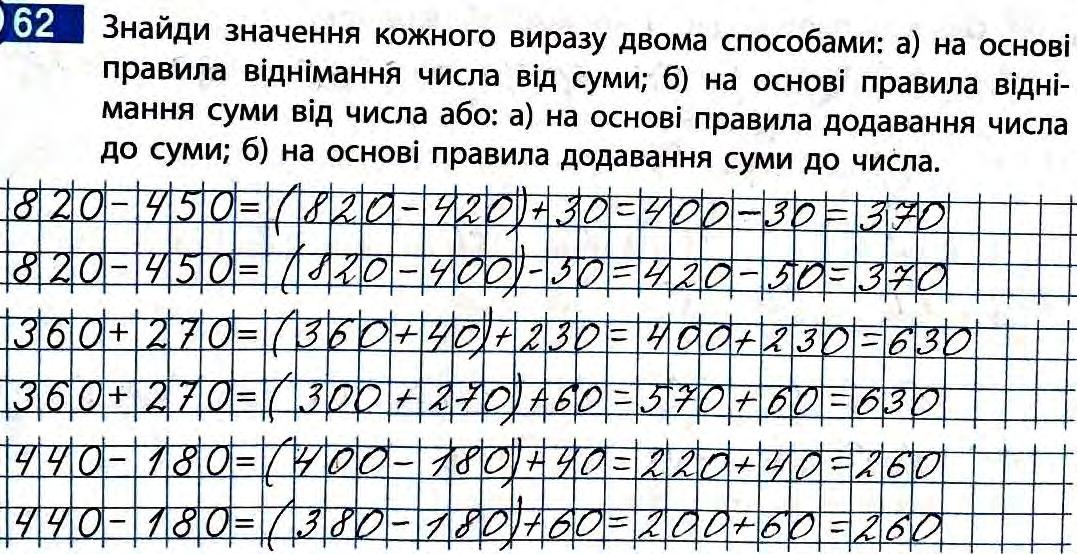 62 Знайди значення кожного виразу двома способами: а) на основі
правила віднімання числа від суми; б) на основі правила відні-
мання суми від числа або: а) на основі правила додавання числа
до суми; б) на основі правила додавання суми до числа.
820-450=(820-420)+30=400-30=370
820-450=(820-400)-50=420-50=370
360+270=(360+40)+230=400+230=630
360+270=(300+270)+60=570+60=630
440-180=(400-180)+40=220+40=260
440-180=(380-180)+60=200+60=260